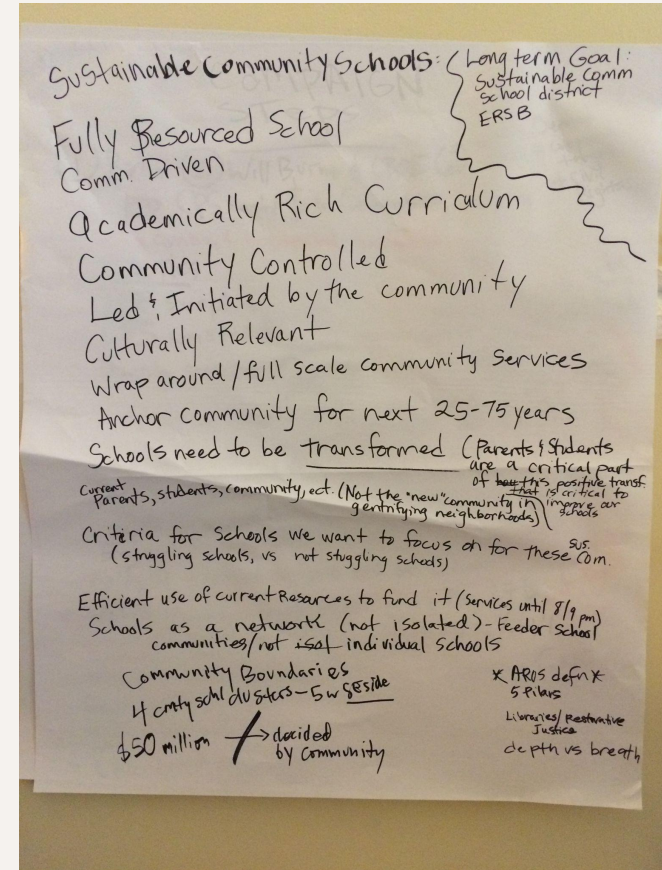 Sustainable Community Schools:
Long term Goal:
Sustainable Comm
School district
ERSB
Fully Resourced School
Comm. Driven
Academically Rich Curriculum
Community Controlled
Led & Initiated by the community
Culturally Relevant
Wrap around/full scale community services
Anchor community for next 25-75 years
Schools need to be transformed (Parents & Students
are a critical part
of how this positive transf.
that is critical to
improve our
schools
Current
Parents, students, community, ect. (Not the "new" community in
gentifying neighborhoods)
Criteria for Schools we want to focus on for these sus.
Com.
(struggling schools, vs not stuggling schools)
Efficient use of current Resources to fund it (services until 8/9 pm)
Schools as a network (not isolated) - Feeder School
communities/not isol individual schools
Community Boundaries
4 cmty schl clusters - 5 w SEside
$50 million → decided
by community
* AROS defn *
5 Pillars
Libraries/Restorative
Justice
depth vs breath